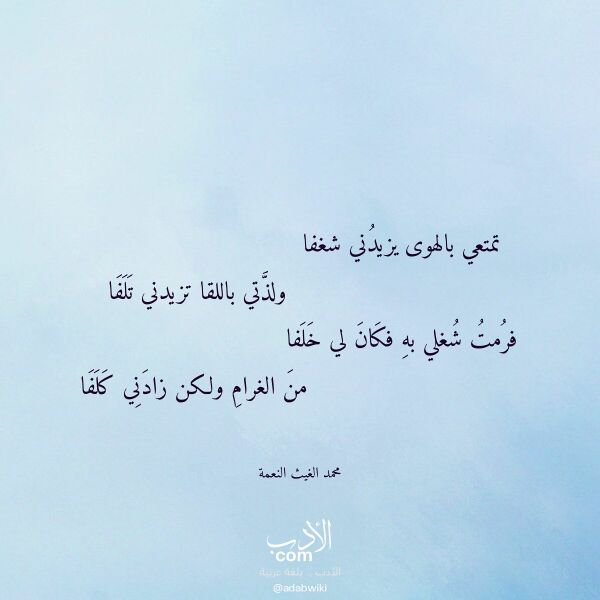 تمتعي بالهوى يزيدُني شغفا
ولذَّتي باللقا تزيدني تَلَفَا
فرُمتُ شُغلي بهِ فكَانَ لي خَلَفا
منَ الغرامِ ولكن زادَنِي كَلَفَا
محمد الغيث النعمة
الأدب
com
الأدب .. بلغة عربية
@adabwiki